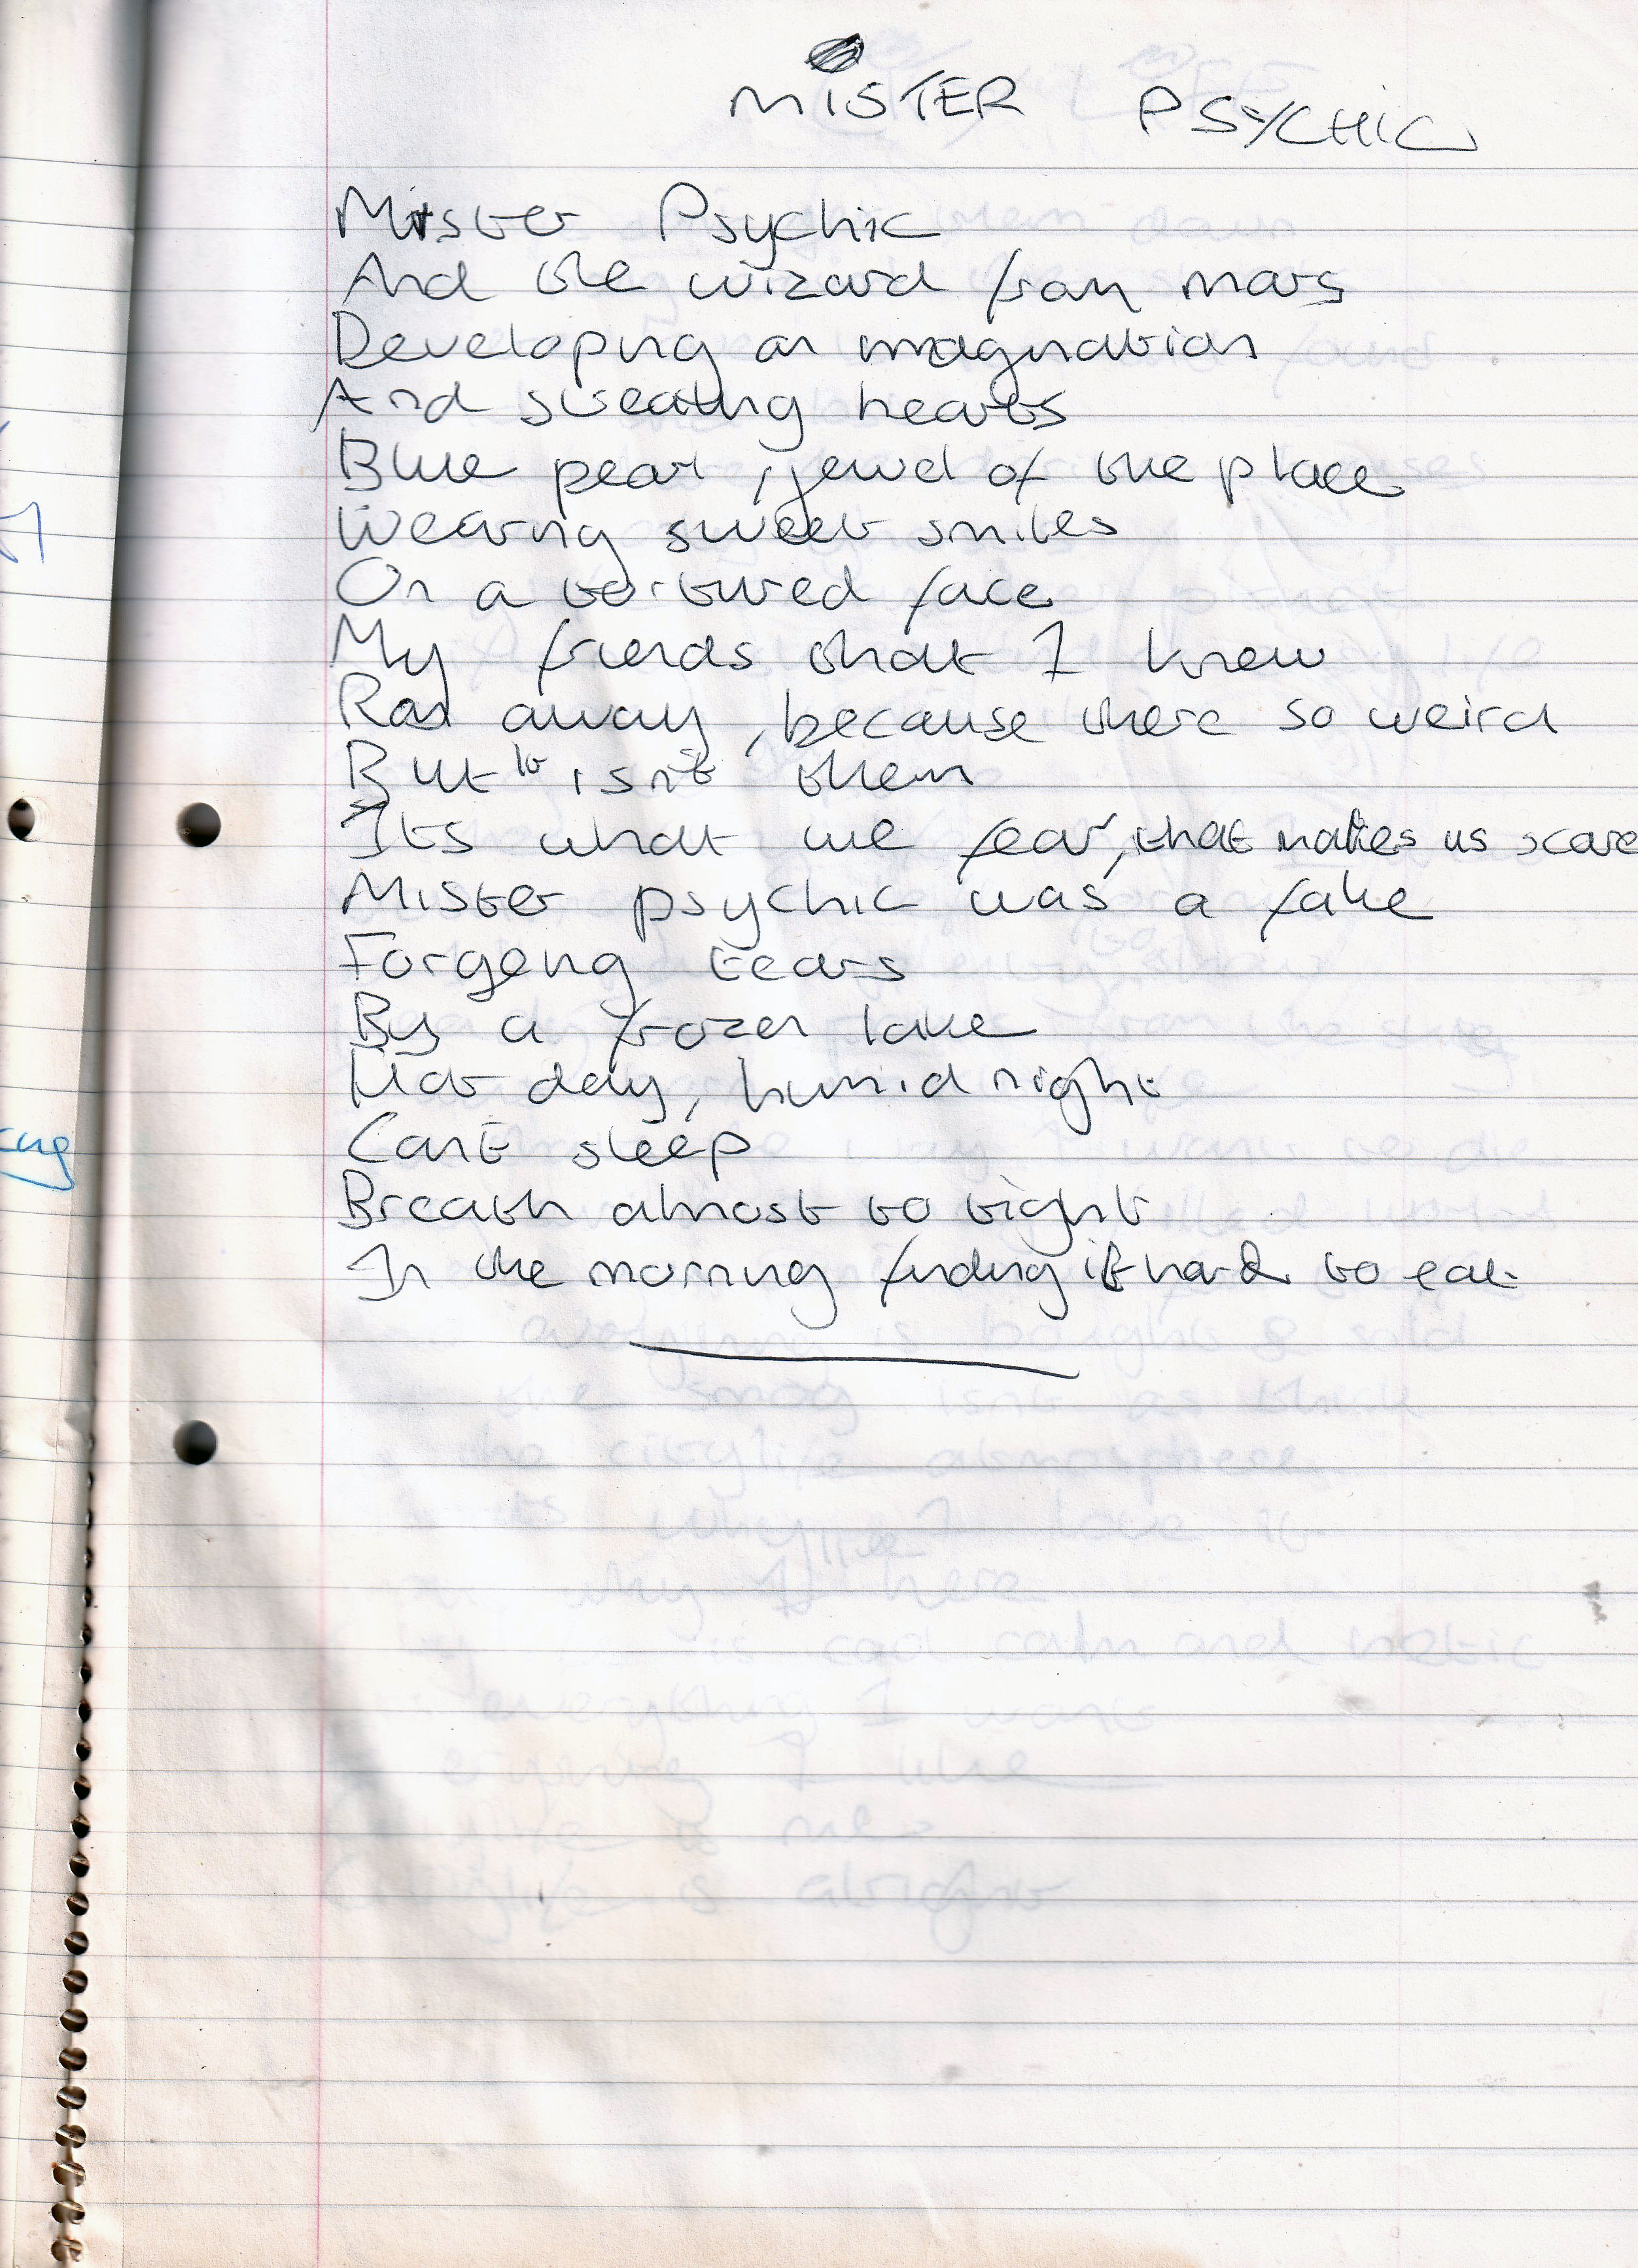 MISTER PSYCHIC
Mister Psychic
And the wizard from mars
Developing an imagination
And sweating hearts
Blue pearl, jewel of the place
Wearing sweet smiles
On a tortured face
My friends that I knew
Ran away, because there so weird
But it isn't them
Its what we fear, that makes us scare
Mister psychic was a fake
Forgeng tears
By a frozen lake
Hot day, humid night
Cant sleep
Breath almost to tight
In the morning finding it hard to eat